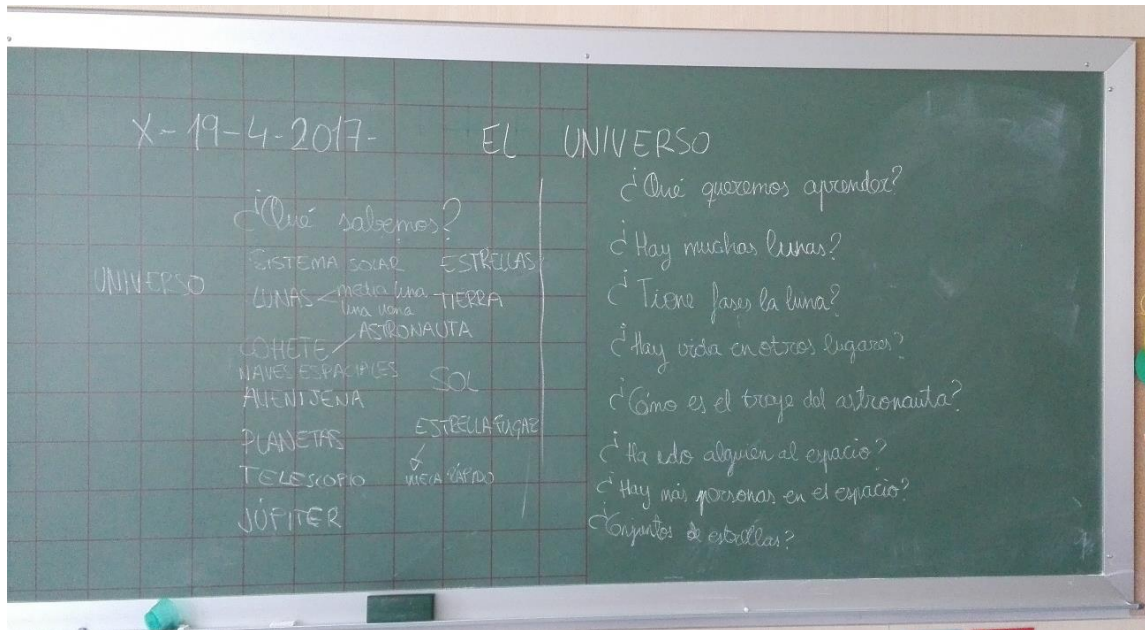 X-19-4-2017- EL UNIVERSO
¿Qué sabemos?
UNIVERSO
SISTEMA SOLAR ESTRELLAS
LUNAS media luna TIERRA
luna llena
ASTRONAUTA
COHETE
NAVES ESPACIALES
SOL
ALIENIJENA
ESTRELLA FUGAZ
PLANETAS
TELESCOPIO RÁPIDO
JÚPITER
¿Qué queremos aprender?
¿Hay muchas lunas?
¿Tiene fases la luna?
¿Hay vida en otros lugares?
¿Cómo es el traje del astronauta?
¿Ha ido alguien al espacio?
¿Hay más personas en el espacio?
¿Conjuntos de estrellas?